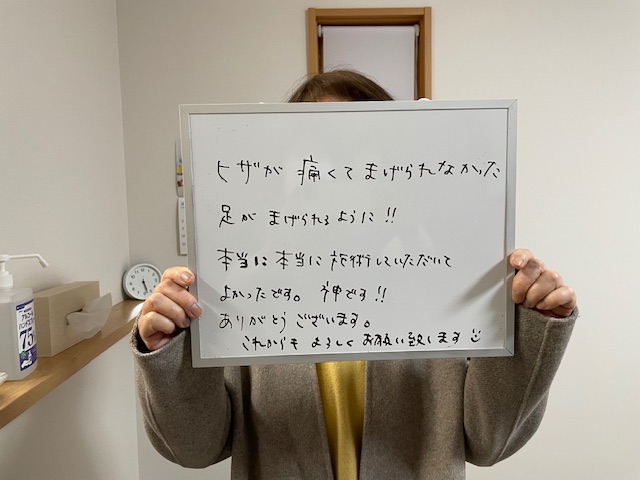 ヒザが痛くてまげられなかった
足がまげられるように!!
本当に本当に施術していただいて
よかったです。神です!!
ありがとうございます。
これからもよろしくお願い致します
アルコール
ハンドジェル
75